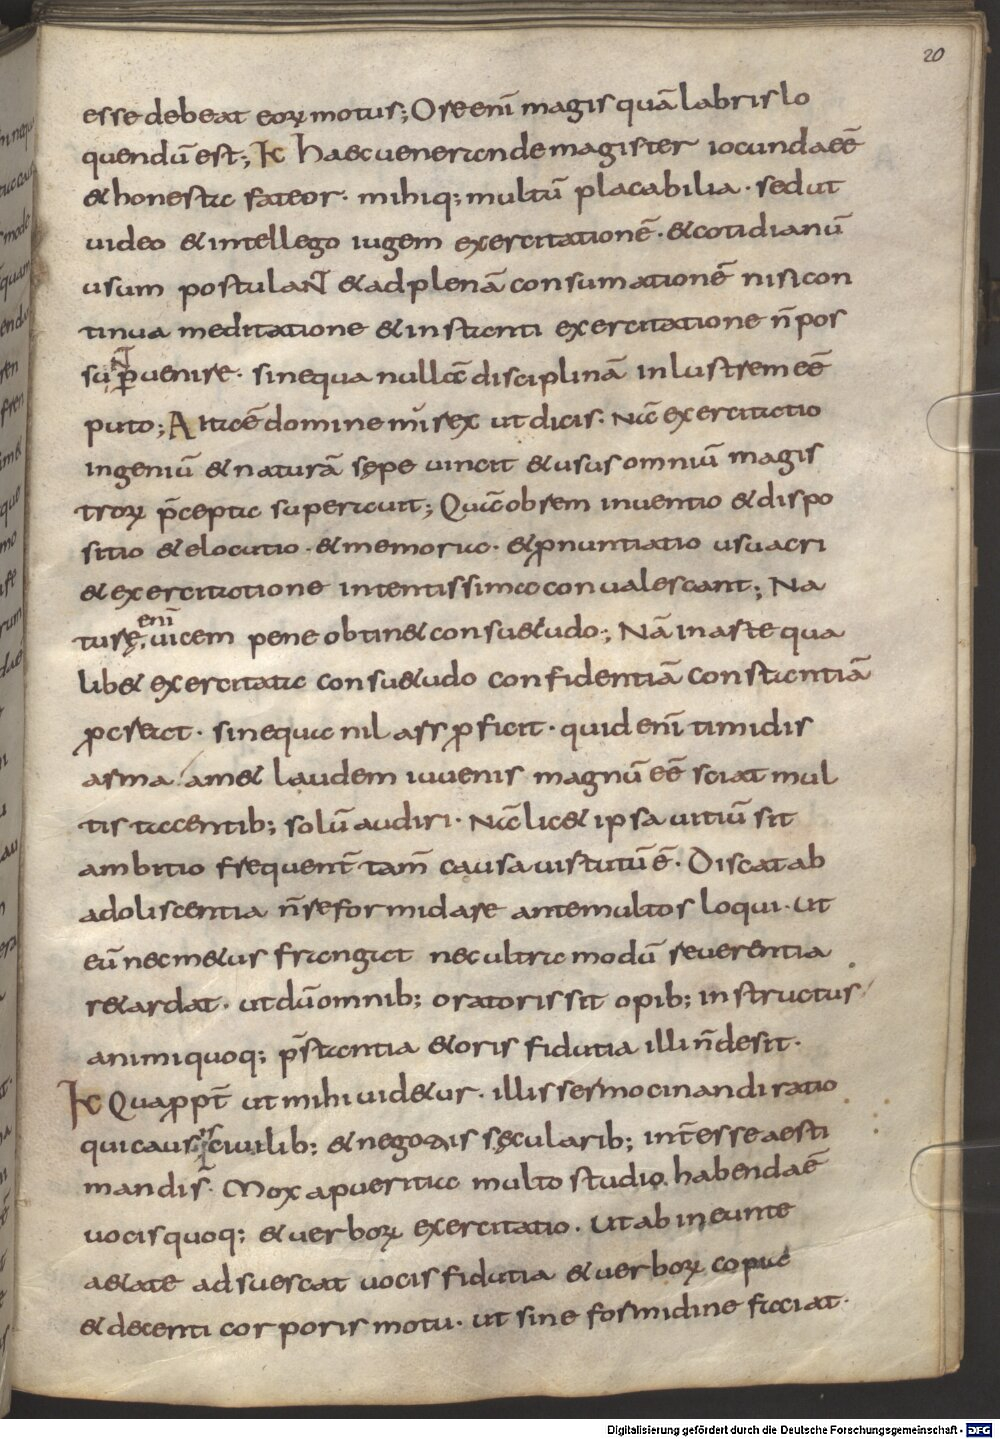 20
esse debeat eoꝝ motus; Ore enī magis quā labris lo
quendū est; K Haec uenerande magister iocunda eē
& honesta fateor · mihiq; multū placabilia · sed ut
uideo & intellego iugem exercitationē · & cotidianū
usum postulant & ad plenā consumationē nisi con
tinua meditatione & instanti exercitatione n̄ pos
sunt ꝑuenire · sine qua nullā disciplinā inlustrem eē
puto; A Ita ē domine mi rex ut dicis · Nā exercitatio
ingeniū & naturā sępe uincit & usus omniū magis
troꝝ p̄cepta superauit; Quā ob rem inventio & dispo
sitio & elocutio · & memoria · & ꝓnuntiatio usu acri
& exercitatione intentissima conualescant; Na
turę enī uicem pene obtin& consu&udo; Nā in arte qua
lib& exercitata consu&udo confidentiā constantiā
ꝓcreat · sine qua nil ars ꝓficit · quid enī timidis
arma / am& laudem iuuenis magnū eē sciat mul
tis tacentib; solū audiri · Nā lic& ipsa uitiū sit
ambitio frequent̄ tam̄ causa uirtutū ē · Discat ab
adoliscentia n̄ reformidare ante multos loqui · ut
eū nec m&us frangat nec ultra modū reuerentia
r&ardat · ut dū omnib; oratoris sit opib; instructus
animi quoq; p̄stantia & oris fidutia illi n̄ desit ·
K Quaꝓpt̄ ut mihi uid&ur · illis sermocinandi ratio
qui causis ciuilib; & negotiis sęcularib; int̄esse aesti
mandi s̄ · Mox a pueritia multo studio habenda ē
uocis quoq; & uerboꝝ exercitatio · Ut ab ineunte
a&ate adsuescat uocis fidutia & uerboꝝ copia
& decenti corporis motu · ut sine formidine faciat ·
Digitalisierung gefördert durch die Deutsche Forschungsgemeinschaft - DFG